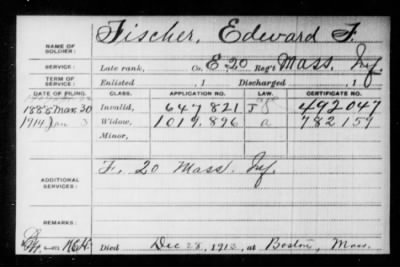 NAME OF SOLDIER: Fischer, Edward F.
SERVICE: Late rank, Co. E. 20 Reg't Mass. Inf.
TERM OF SERVICE: Enlisted , 1 Discharged , 1
DATE OF FILING. CLASS. APPLICATION NO. LAW. CERTIFICATE NO.
1888 Mar 30 Invalid, 647.821 J 492.047
1914 Jan 3 Widow, 1019.896 a 782.159
Minor,
ADDITIONAL SERVICES: F. 20 Mass. Inf.
REMARKS:
Died Dec 28, 1913, at Boston, Mass.